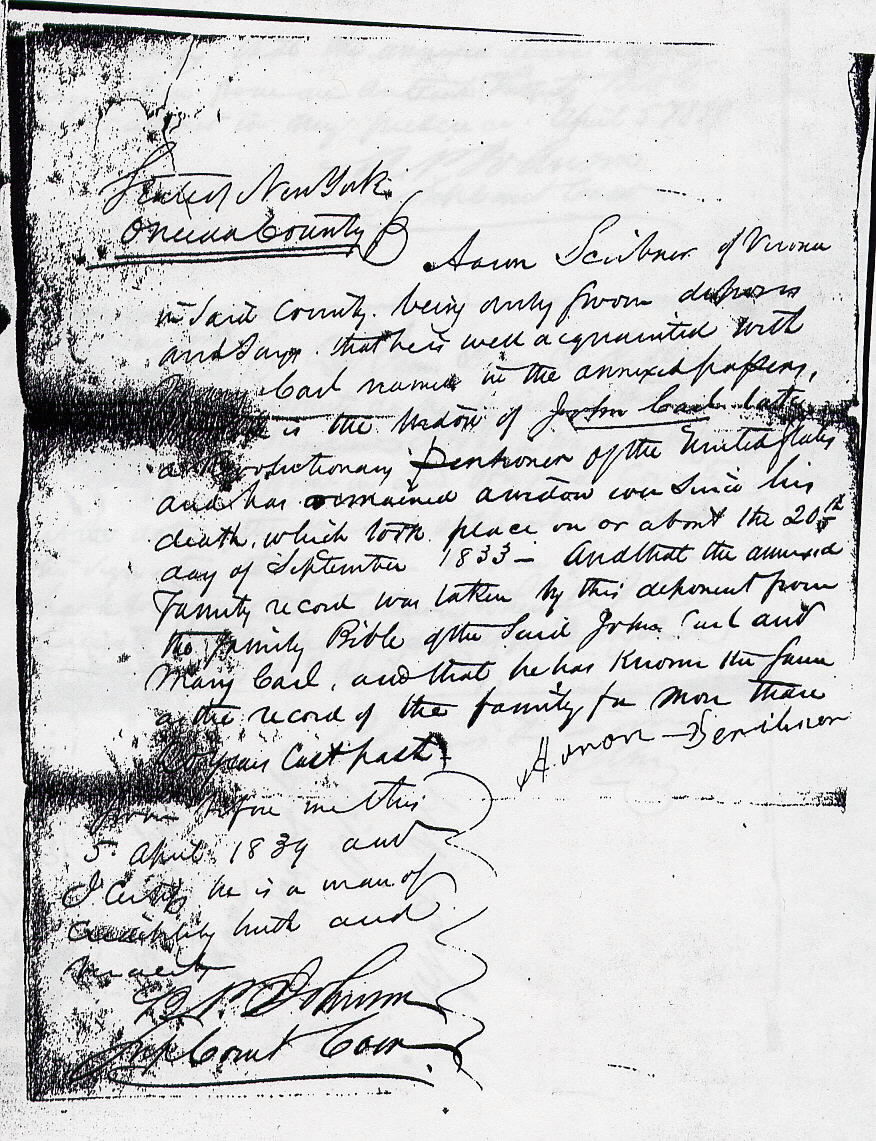 State of New York
Oneida County
Aaron Scribner of Verona
in Said County. being duly Sworn deposes
and Says. that he is well acquainted with
Carl named in the annexed papers,
is the Widow of John Carl late
a Revolutionary Pensioner of the United States
and has remained a widow ever Since his
death, which took place on or about the 20th
day of September 1833 - And that the annexed
Family record was taken by this deponent from
the family Bible of the Said John Carl and
Mary Carl, and that he has Known the Same
as the record of the family for More than
20 years last past -
Aaron Scribner
Sworn before me this
5 April 1839 and
I Certify he is a man of
Credibility truth and
Veracity
B. P. Johnson
Sup Court Com